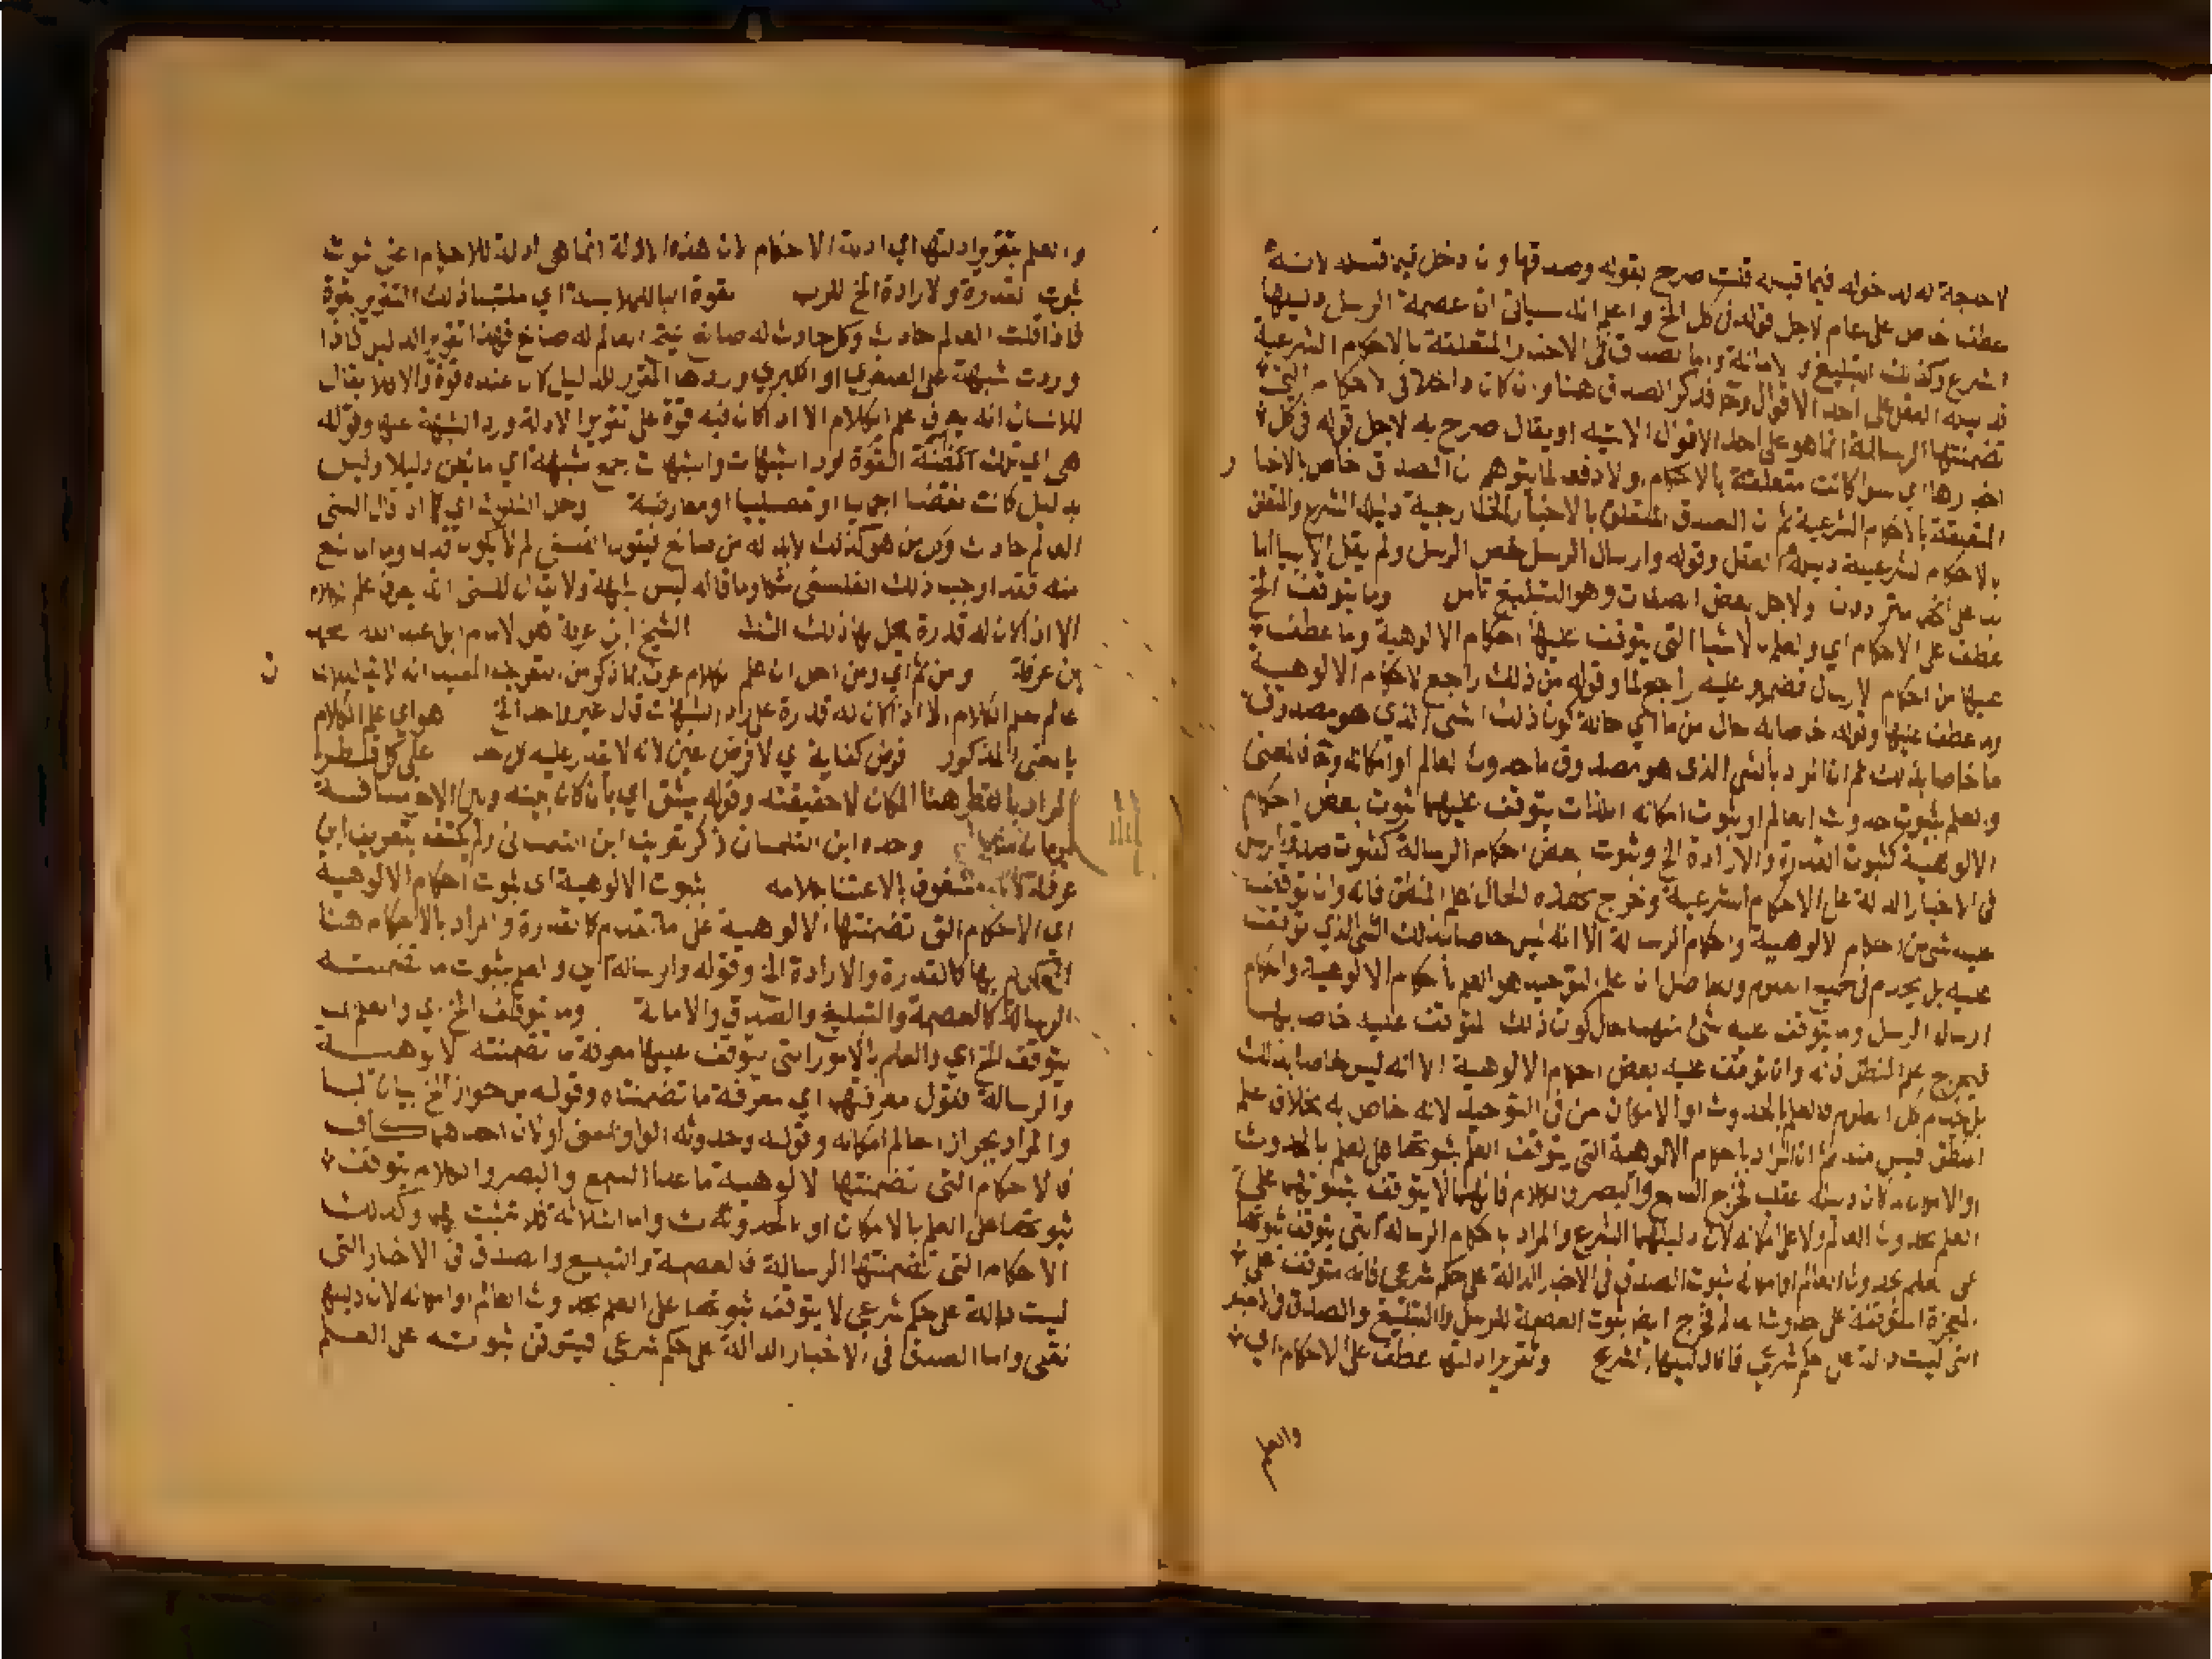 لا حاجة له لدخوله فيما قبله قلت صرح بقوله وصدقها وان دخل فيما قبله لانه
عطف خاص على عام لاجل قوله في كل الخ واعلم انه سياتي ان عصمة الرسل دليلها
الشرع وكذلك التبليغ والامانة واما الصدق في الاخبار المتعلقة بالاحكام الشرعية
فدليله العقل على احد الاقوال وحـ فذكر الصدق هنا وان كان داخلا في الاحكام التي
تضمنتها الرسالة انما هو على احد الاقوال الاتيه او يقال صرح به لاجل قوله في كل
اخبارها اي سوا كانت متعلقة بالاحكام اولا دفعا لما يتوهم ان الصدق خاص بالاخبار
المتعلقة بالاحكام الشرعية ثم ان الصدق المتعلق بالاخبار الخارجية دليله الشرع والمتعلق
بالاحكام الشرعية دليله العقل وقوله وارسال الرسل خص الرسل ولم يقل الانبيا اما
ولاجل بعض الصفات وهو التبليغ تامل وما يتوقف الخ
عطف على الاحكام اي والعلم بالاشيا التي يتوقف عليها احكام الالوهية وما عطف
عليها من احكام الارسال فضمير عليه راجع لما وقوله من ذلك راجع لاحكام الالوهية
وما عطف عليها وقوله خاصا به حال من ما اي حالة كون ذلك الشي الذي هو مصدوق
ما خاصا بذلك ثم ان المراد بالشي الذي هو مصدوق ما حدوث العالم او امكانه وحـ فالمعنى
والعلم بثبوت حدوث العالم او ثبوت امكانه اللذات يتوقف عليهما ثبوت بعض احكام
الالوهية كثبوت القدرة والارادة الخ وثبوت بعض احكام الرسالة كثبوت صدق الرسل
في الاخبار الدالة على الاحكام الشرعية وخرج بهذه الحال علم المنطق فانه وان توقف
عليه شي من احكام الالوهية واحكام الرسالة الا انه ليس خاصا بذلك الشي الذي توقف
عليه بل يخدم في جميع العلوم والحاصل ان علم التوحيد هو العلم باحكام الالوهية واحكام
ارسال الرسل وما يتوقف عليه شي منهما حال كون ذلك المتوقف عليه خاصا بها
فيخرج علم المنطق فانه وان توقف عليه بعض احكام الالوهية الا انه ليس خاصا بذلك
بل يخدم كل العلوم فالعلم بالحدوث او الامكان من فن التوحيد لانه خاص به بخلاف علم
المنطق فليس منه ثم ان المراد باحكام الالوهية التي يتوقف العلم بثبوتها على العلم بالحدوث
او الامكان ما كان دليله عقليا فخرج السمع والبصر والكلام فانها لا يتوقف ثبوتها على
العلم بحدوث العالم ولا على امكانه لان دليلها الشرع والمراد باحكام الرسالة التي يتوقف ثبوتها
على العلم بحدوث العالم او امكانه ثبوت الصدق في الاخبار الدالة على حكم شرعي فانه متوقف على
المعجزة المتوقفة على حدوث العالم فخرج ايضا ثبوت العصمة للرسل والتبليغ والصدق في الاخبار
التي ليست دالة على حكم شرعي فان دليلها الشرع وتقرير ادلتها عطف على الاحكام اي
والعلم
والعلم بتقرير ادلتها اي ادلة الاحكام لان هذه الادلة انما هي ادلة للاحكام اعني ثبوت
ثبوت القدرة والارادة الخ للرب بقوة الباللملابسة اي ملتبسا ذلك التقرير بقوة
فاذا قلت العالم حادث وكل حادث له صانع ينتج العالم له صانع فهذا تقرير الدليل فاذا
وردت شبهة على الصغري او الكبري وردها المقرر للدليل كان عنده قوة والا فلا يقال
للانسان انه يعرف علم الكلام الا اذا كان فيه قوة على تقرير الادلة ورد الشبهة عنها وقوله
هي اي تلك القوة لرد الشبهات والشبهات جمع شبهة اي ما يظن دليلا وليس
بدليل كانت نقضا اجماليا او تفصيليا او معارضة وحل الشكوك اي اذا قال السني
العالم حادث وكل من هو كذلك لا بد له من صانع فيقول الفلسفي لم لا يكون قديما وما المانع
منه فقد اوجب ذلك الفلسفي شكا وما قاله ليس شبهة ولا يقال للسني انه يعرف علم الكلام
الا ان كان له قدرة يحل بها ذلك الشك الشيخ ابن عرفة هو الامام ابو عبد الله محمد
بن عرفة ومن ثم اي ومن اجل ان علم الكلام عرف بما ذكر من التعريف المفيد انه لا يقال لانسان
عالم بعلم الكلام الا اذا كان له قدرة على رد الشبهات قال غير واحد الخ هو اي علم الكلام
بالمعنى المذكور فرض كفاية اي لا فرض عين لانه لا يقدر عليه كل احد على كل قطر
المراد بالقطر هنا المكان لا حقيقته وقوله يشق اي بأن كان بينه وبين الاخر مسافة
وحده ابن التلمسان ذكر تعريف ابن التلمساني ولم يكتف بتعريف ابن
عرفة لانه مشغوف بالاعتنا بكلامه بثبوت الالوهية اي ثبوت احكام الالوهية
اي الاحكام التي تضمنتها الالوهية على ما تقدم كالقدرة والمراد بالاحكام هنا
المحكوم بها كالقدرة والارادة الخ وقوله وارساله اي والعلم بثبوت ما تضمنته
الرسالة كالعصمة والتبليغ والصدق والامانة وما يتوقف الخ اي والعلم بما
يتوقف الخ اي والعلم بالامور التي يتوقف عليها معرفة ما تضمنته الالوهية
والرسالة فقوله معرفتها اي معرفة ما تضمنتاه وقوله من جواز الخ بيان لما
والمراد بجواز العالم امكانه وقوله وحدوثه الواو بمعنى او لان احدهما كاف
فالاحكام التي تضمنتها الالوهية ما عدا السمع والبصر والكلام يتوقف
ثبوتها على العلم بالامكان او الحدوث واما الثلاثة فلا تثبت بهما وكذلك
الاحكام التي تضمنتها الرسالة فالعصمة والتبليغ والصدق في الاخبار التي
ليست دالة على حكم شرعي لا يتوقف ثبوتها على العلم بحدوث العالم او امكانه لان دليلها
نقلي واما الصدق في الاخبار الدالة على حكم شرعي فيتوقف ثبوته على العلم